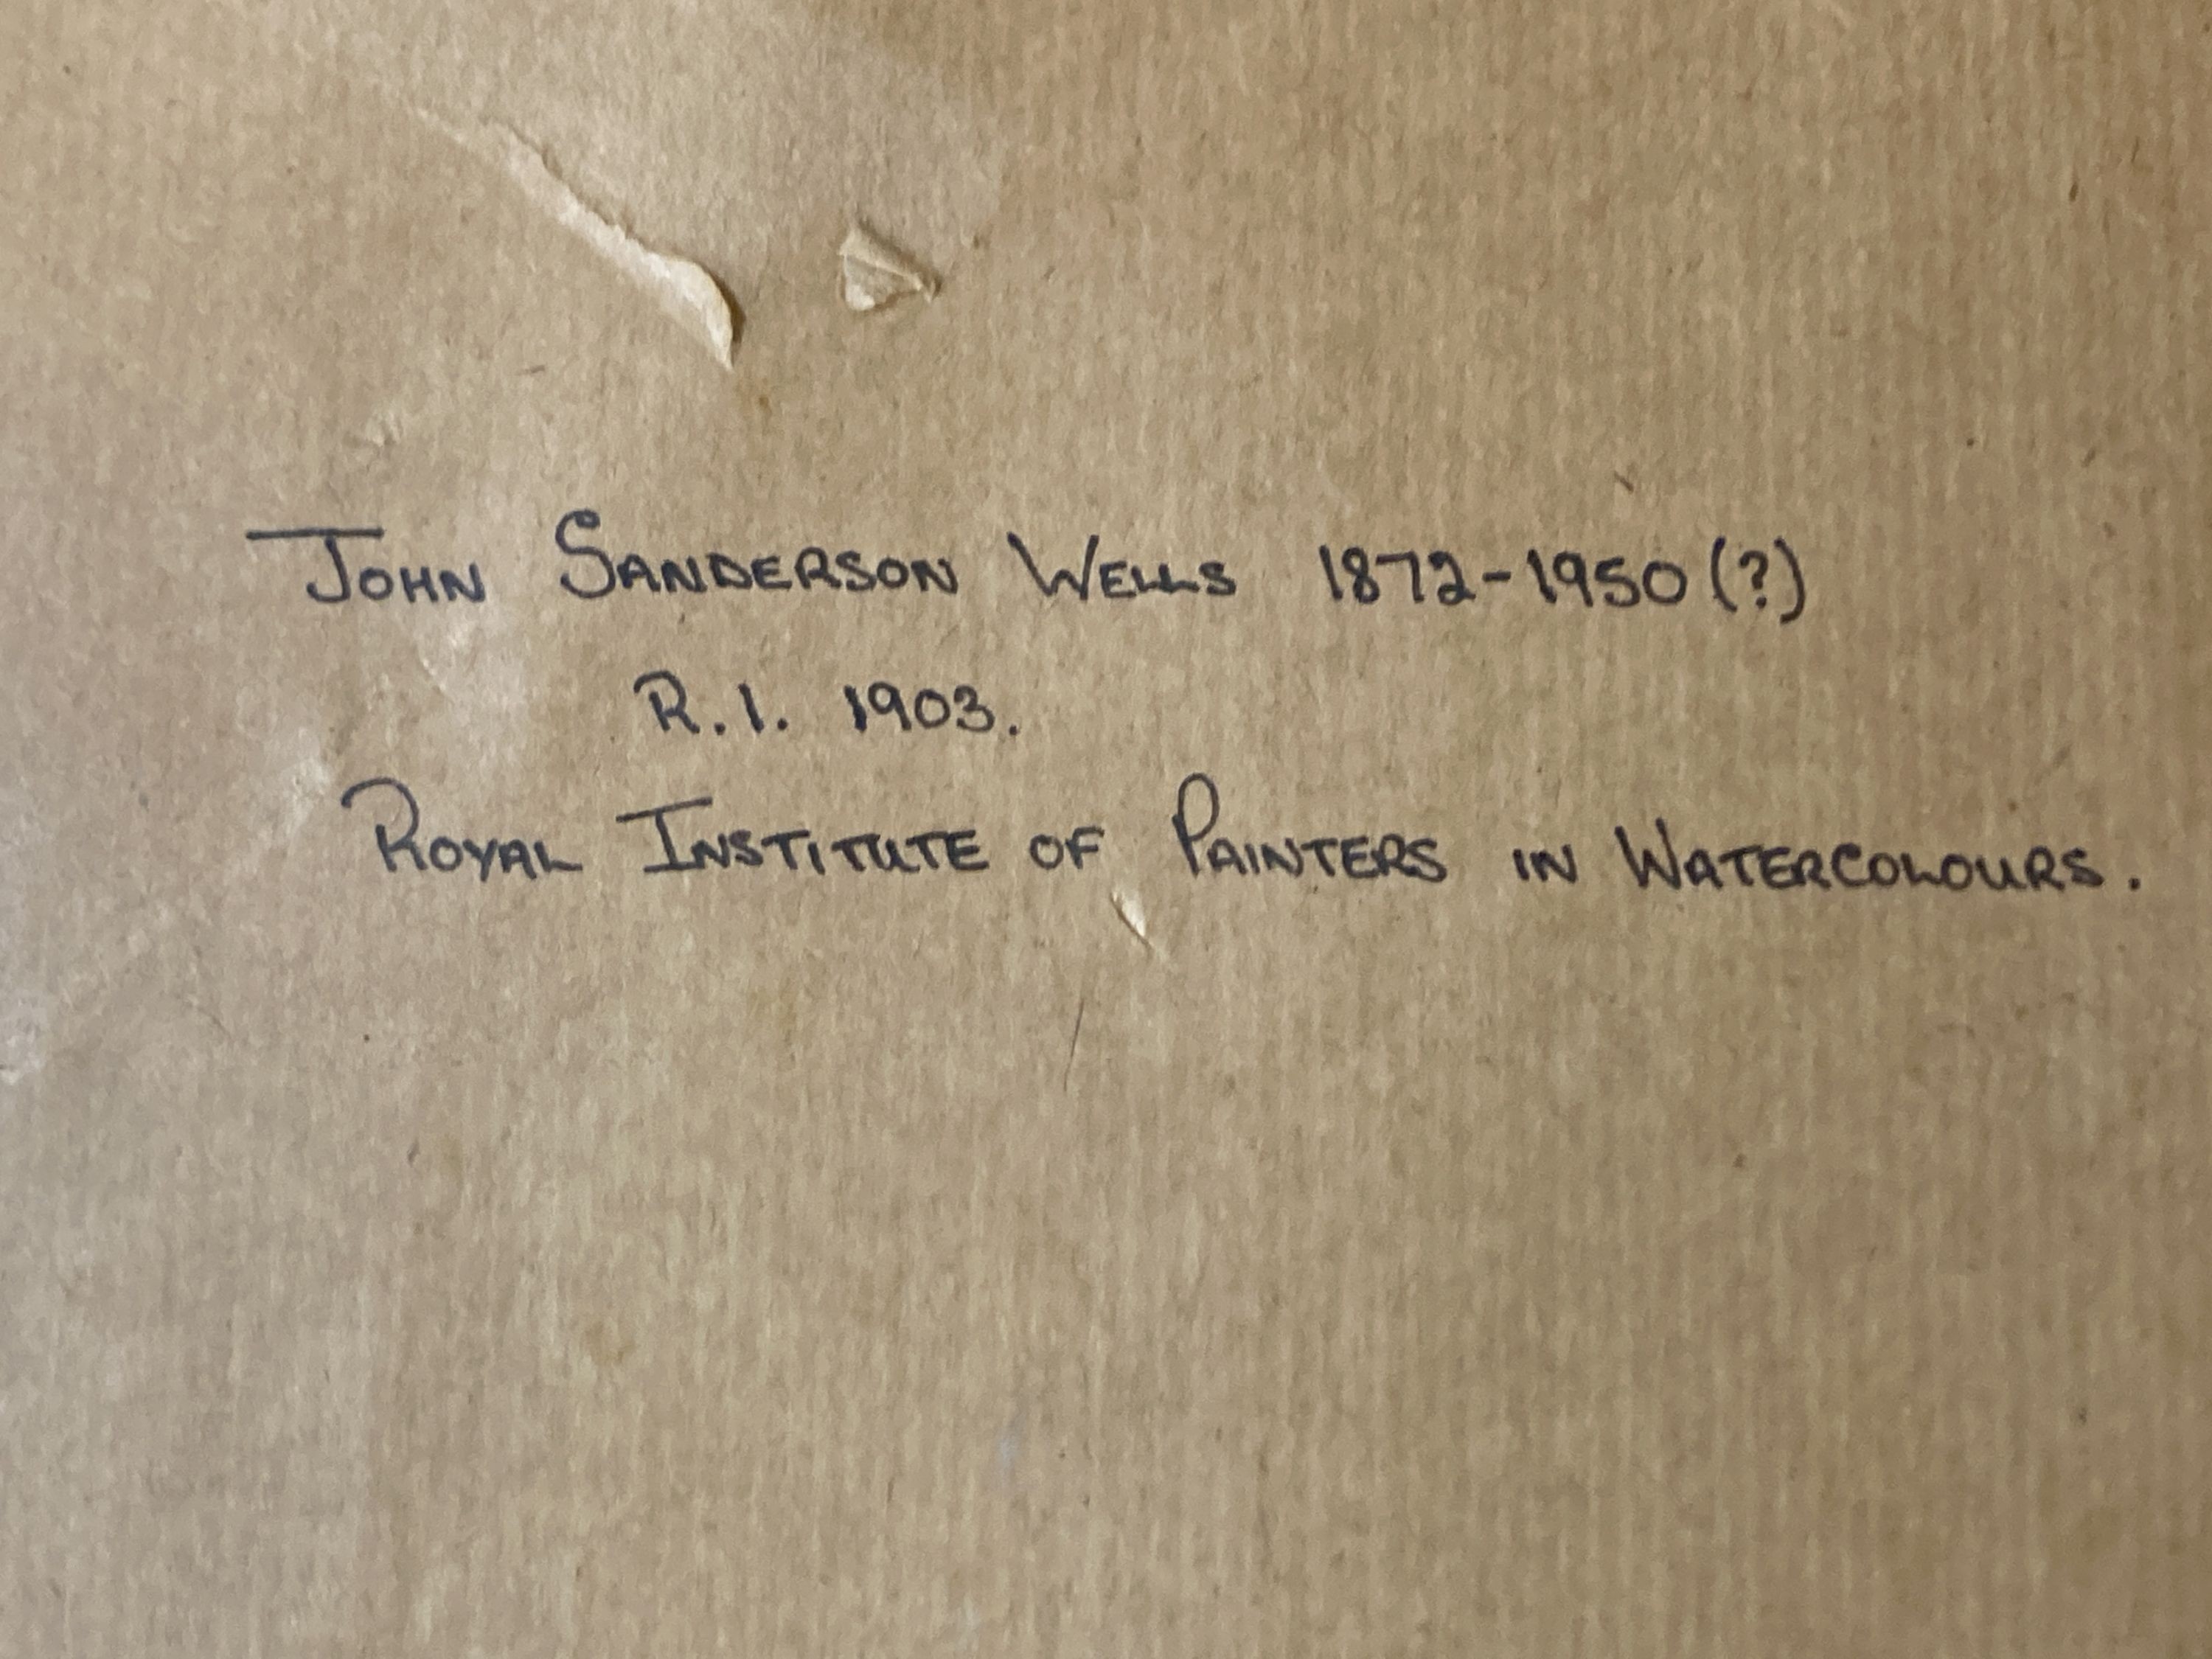 John Sanderson Wells 1872-1950(?)
R.I. 1903.
Royal Institute of Painters in Watercolours.